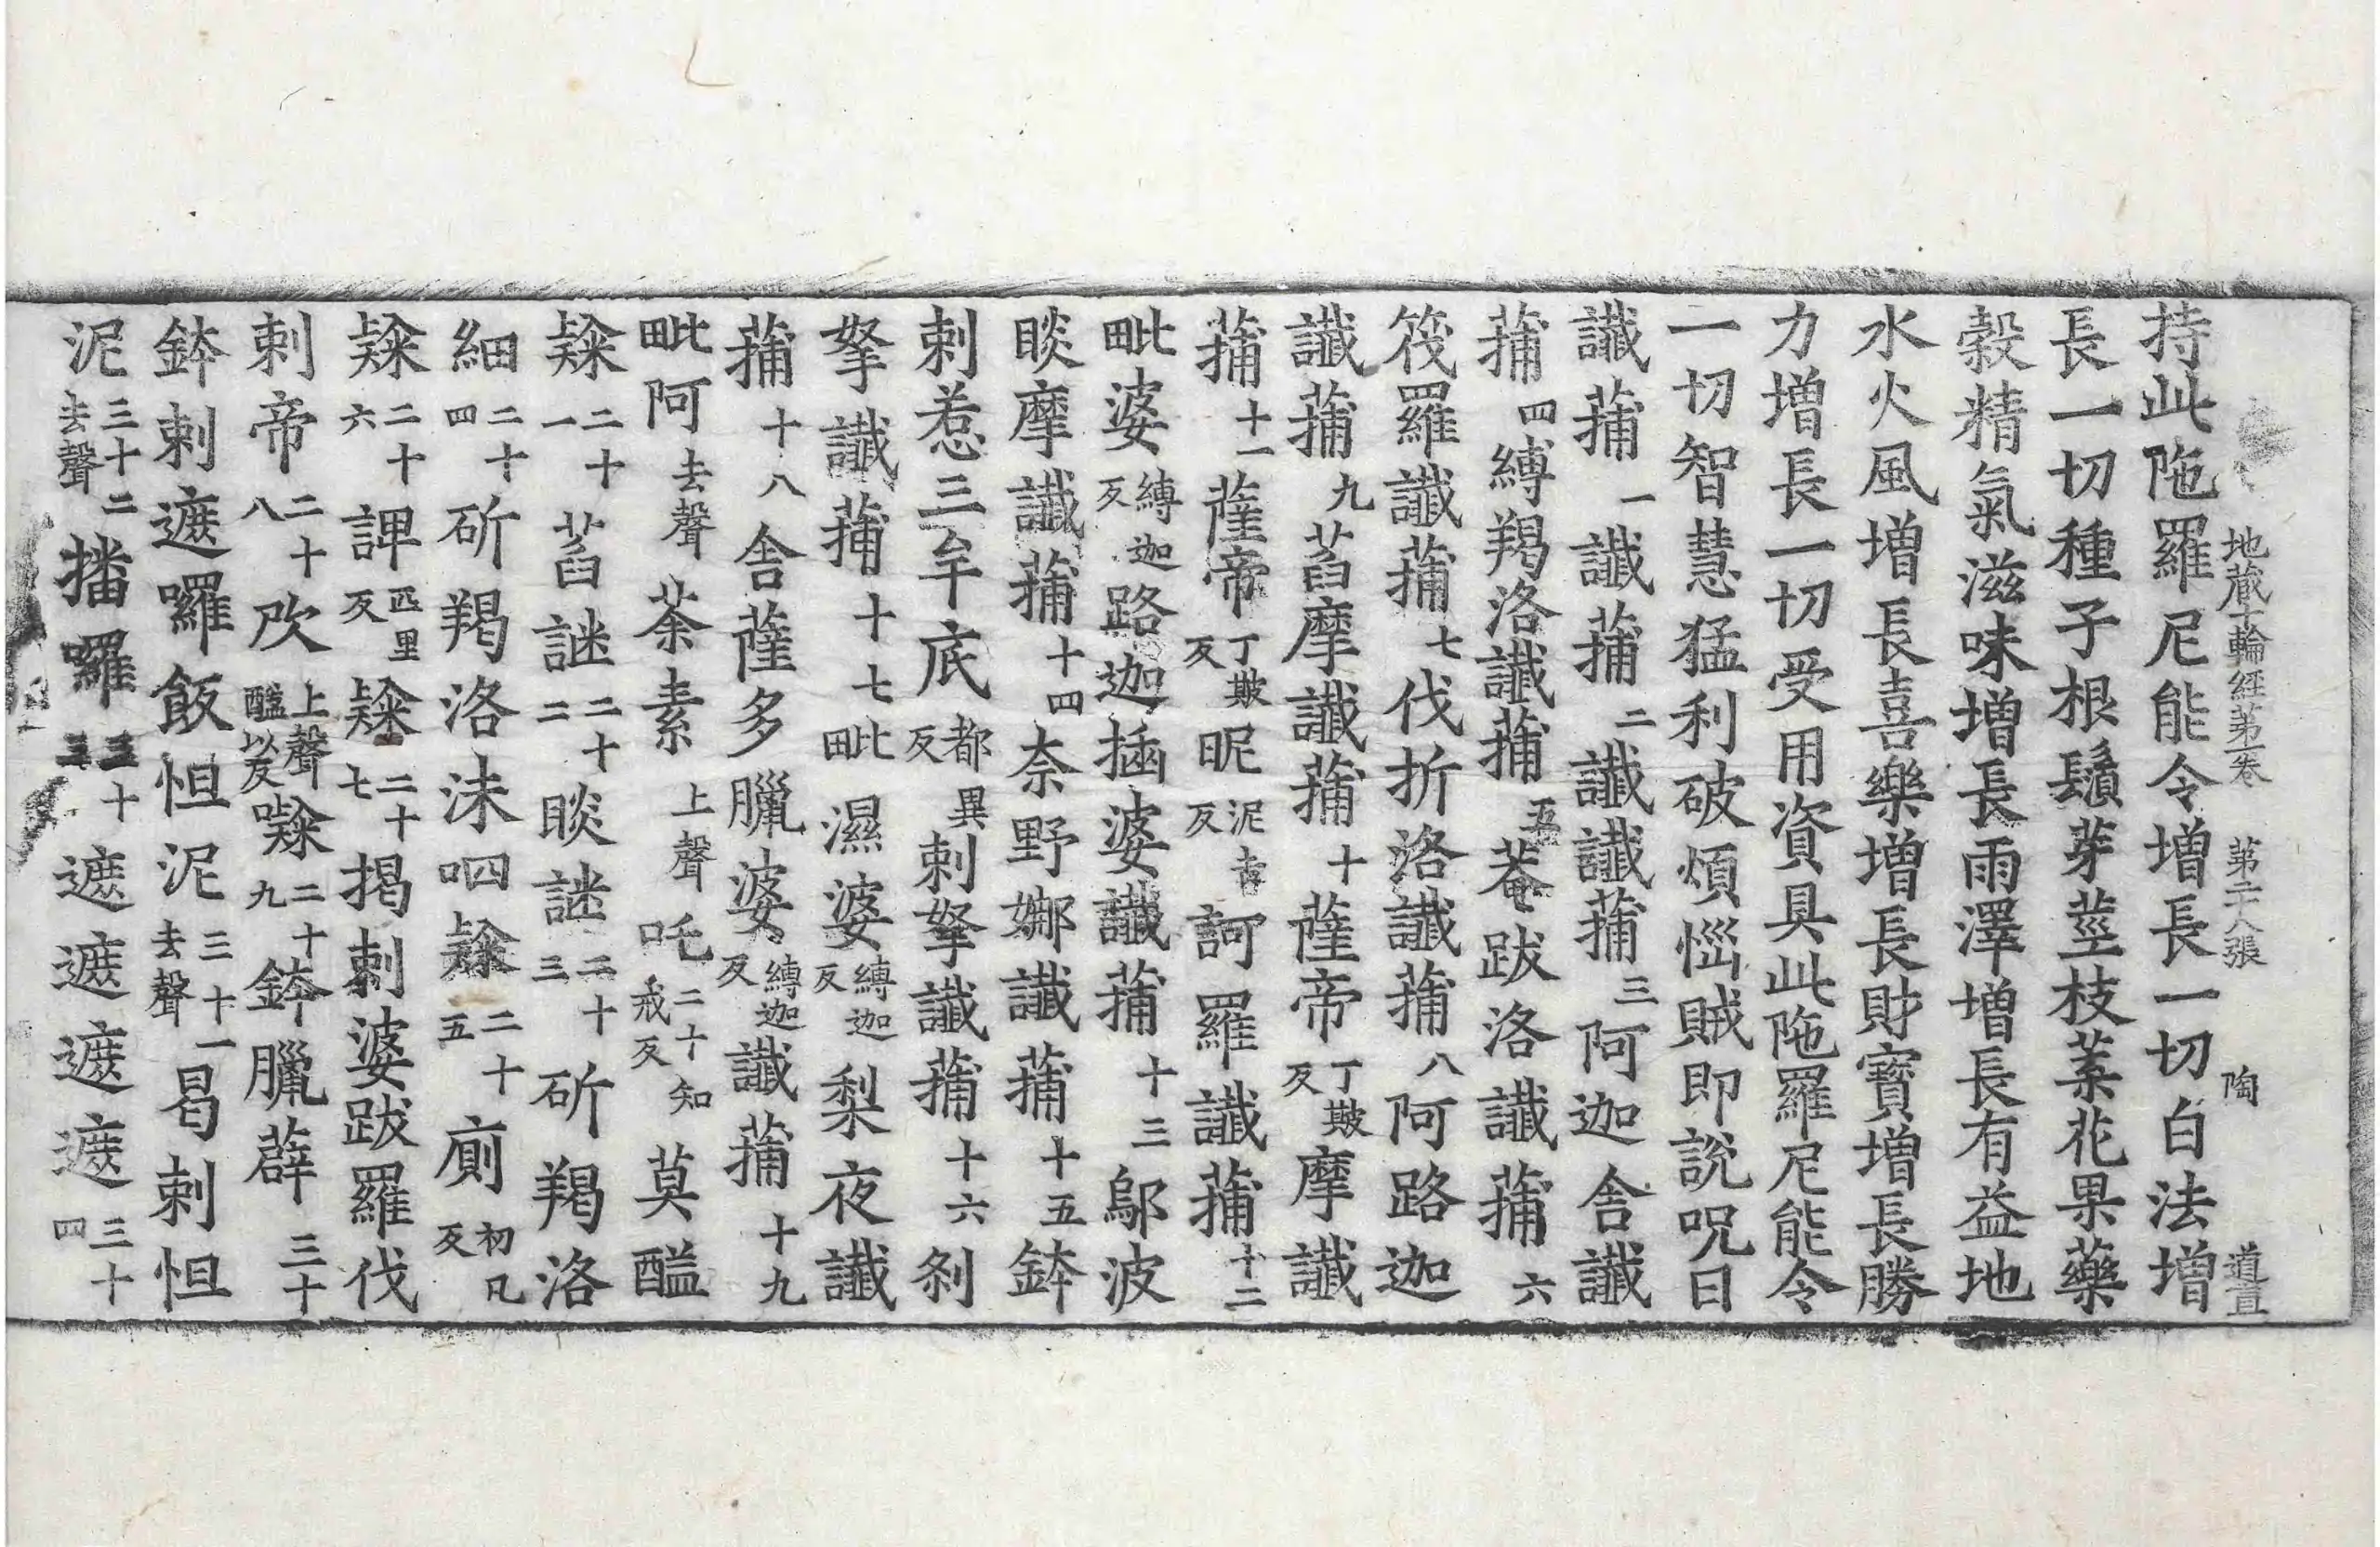 地藏十輪經第一卷 第二十八張 陶 道直
持此陁羅尼能令增長一切白法增
長一切種子根鬚芽莖枝葉花果藥
穀精氣滋味增長雨澤增長有益地
水火風增長喜樂增長財寶增長勝
力增長一切受用資具此陁羅尼能令
一切智慧猛利破煩惱賊即說呪曰
讖蒱一讖蒱二讖讖蒱三阿迦舍讖
蒱四縛羯洛讖蒱五菴跋洛讖蒱六
筏羅讖蒱七伐折洛讖蒱八阿路迦
讖蒱九萏摩讖蒱十薩帝丁㪏反摩讖
蒱十一薩帝丁㪏反昵泥吉反訶羅讖蒱十二
毗婆縛迦反路迦插婆讖蒱十三鄔波
睒摩讖蒱十四奈野娜讖蒱十五鉢
剌惹三牟底都異反剌拏讖蒱十六剎
拏讖蒱十七毗濕婆縛迦反梨夜讖
蒱十八舍薩多臘婆縛迦反讖蒱十九
毗阿去聲荼素上聲吒二十知戒反莫醯
隸二十一萏謎二十二睒謎二十三斫羯洛
細二十四斫羯洛沬呬隸二十五廁初几反
隸二十六諀匹里反隸二十七揭剌婆跋羅伐
剌帝二十八欥上聲醯以反㘑二十九鉢臘薜三十
鉢剌遮囉飯怛泥三十一去聲曷剌怛
泥三十二去聲播囉三十三遮遮遮遮三十四